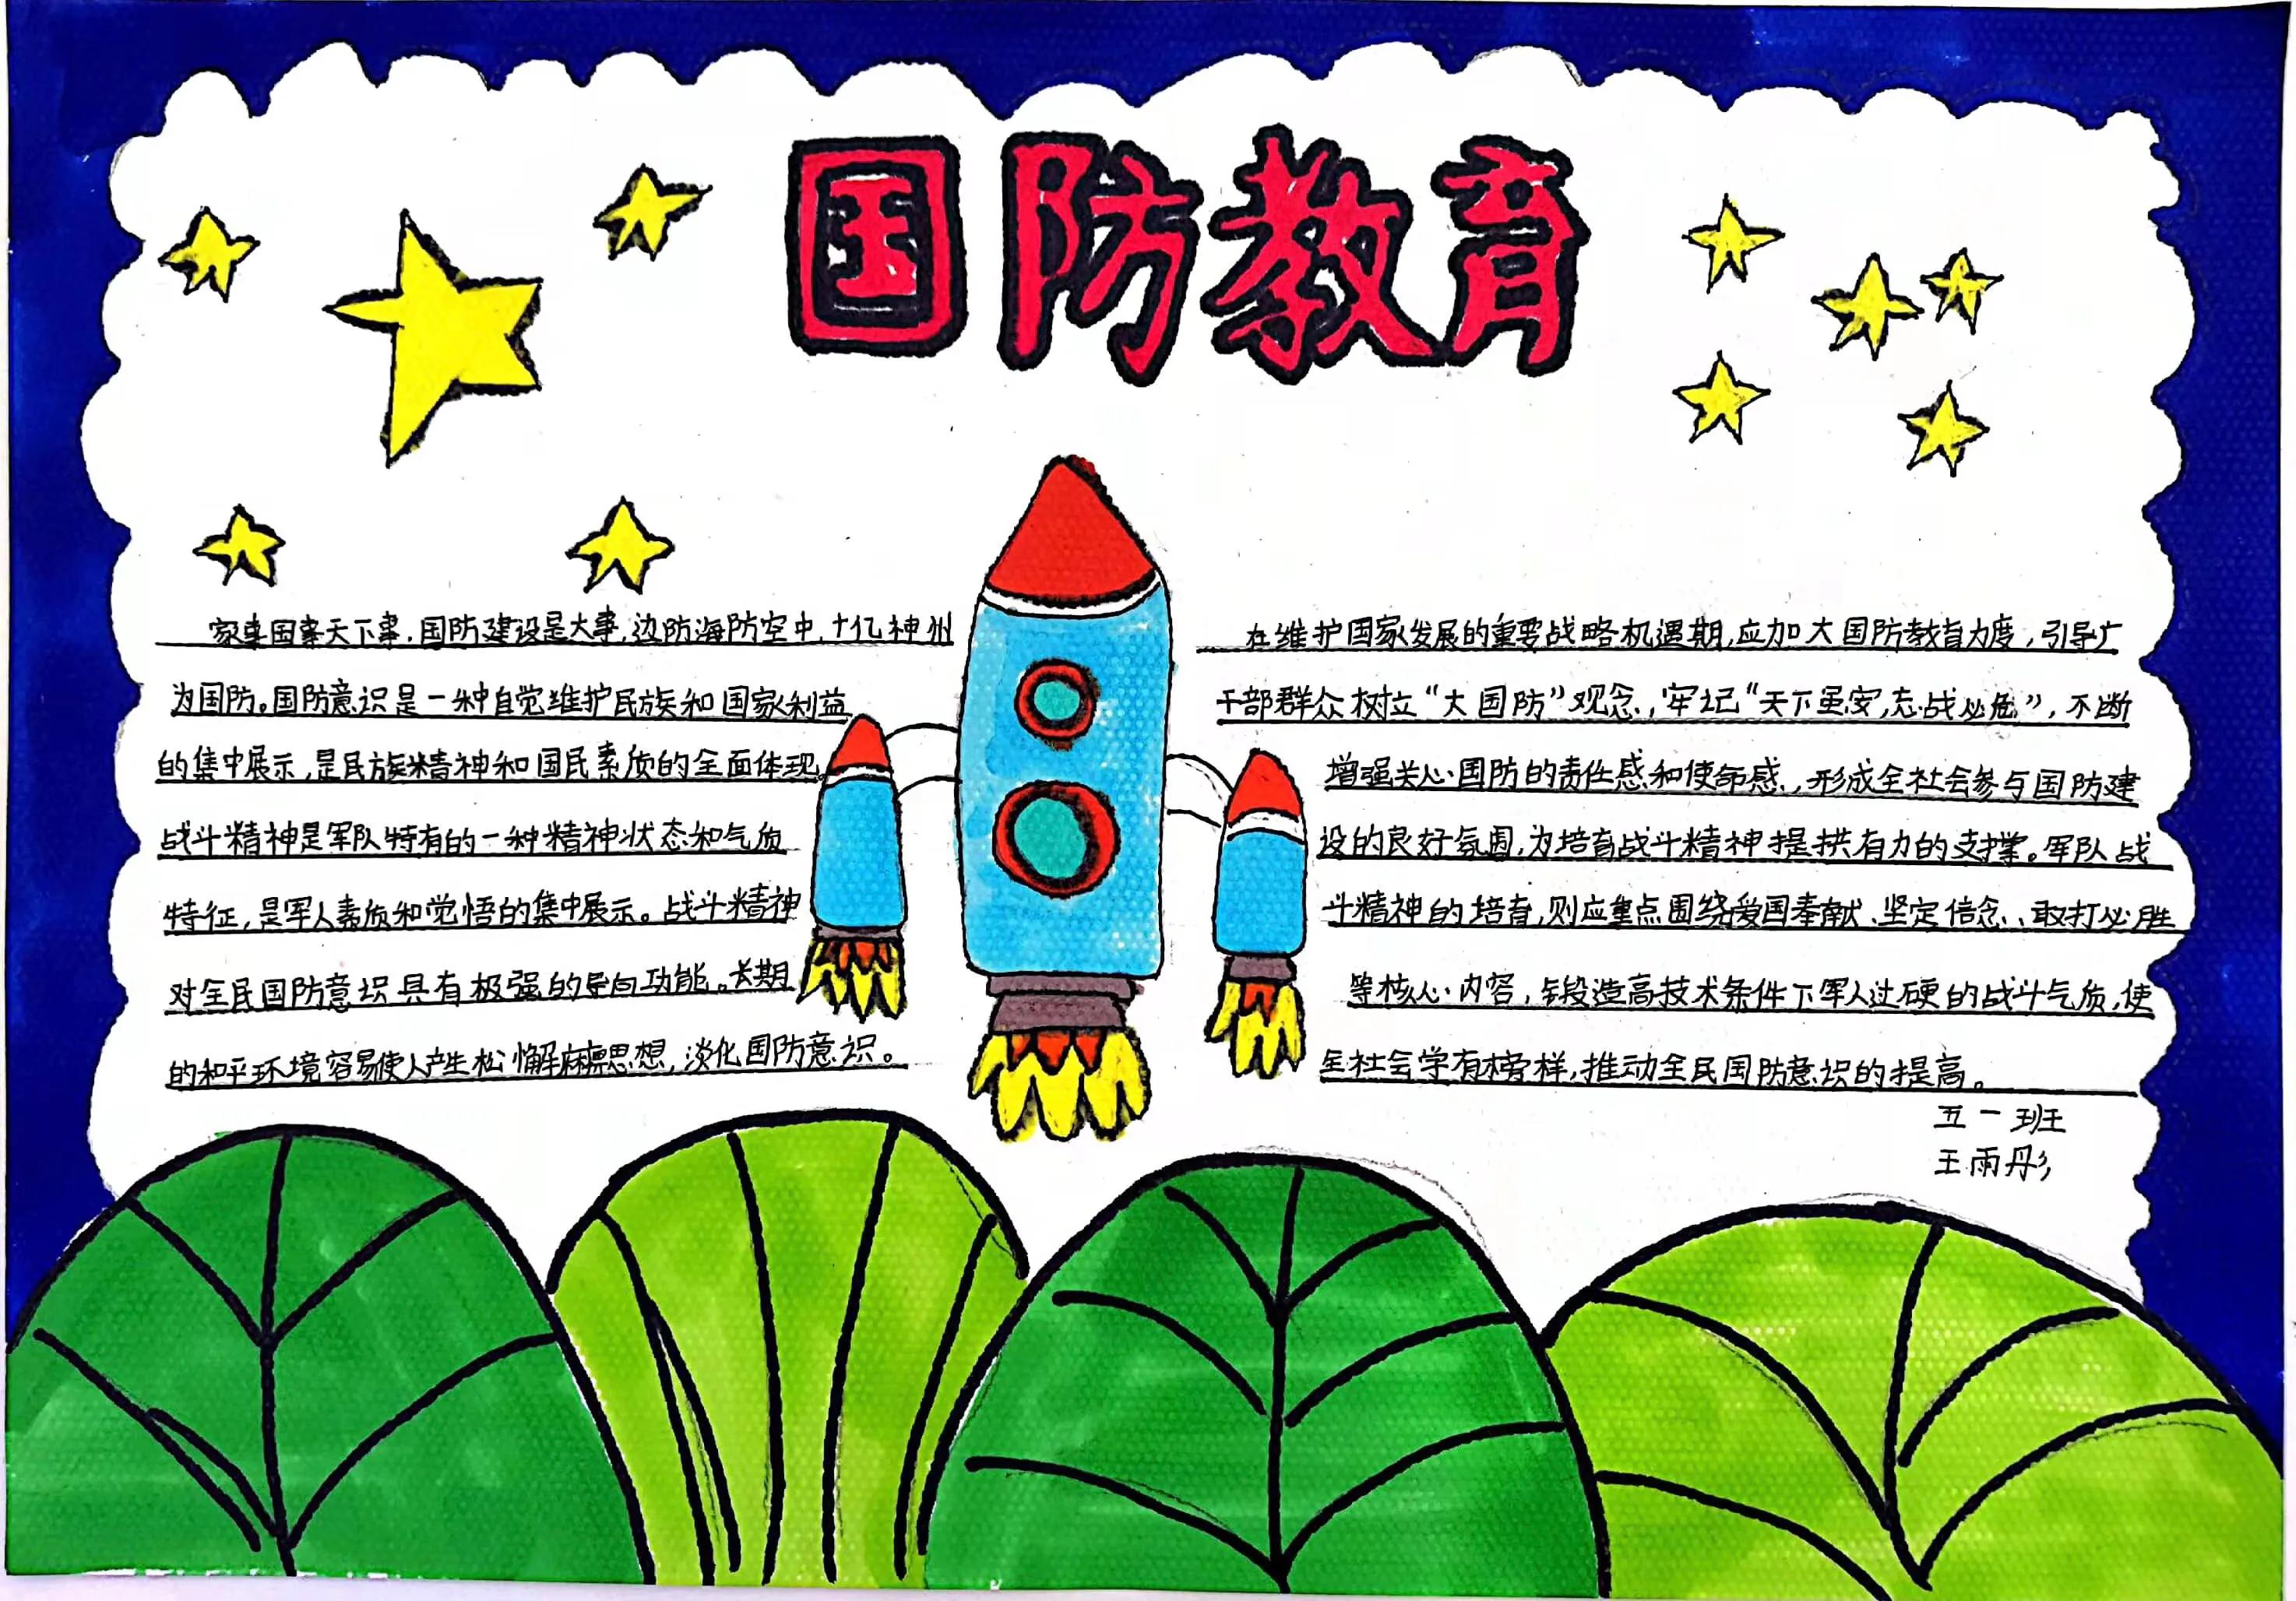 国防教育
家事国事天下事,国防建设是大事,边防海防空中,十亿神州
为国防。国防意识是一种自觉维护民族和国家利益
的集中展示,是民族精神和国民素质的全面体现
战斗精神是军队特有的一种精神状态和气质
特征,是军人素质和觉悟的集中展示。战斗精神
对全民国防意识具有极强的导向功能。长期
的和平环境容易使人产生松懈麻痹思想,淡化国防意识。
在维护国家发展的重要战略机遇期,应加大国防教育力度,引导广
干部群众树立“大国防”观念,牢记“天下虽安,忘战必危”,不断
增强关心国防的责任感和使命感,形成全社会参与国防建
设的良好氛围,为培育战斗精神提拱有力的支撑。军队战
斗精神的培育,则应重点围绕爱国奉献、坚定信念、敢打必胜
等核心内容,锻造高技术条件下军人过硬的战斗气质,使
全社会学有榜样,推动全民国防意识的提高。
五一班
王雨彤